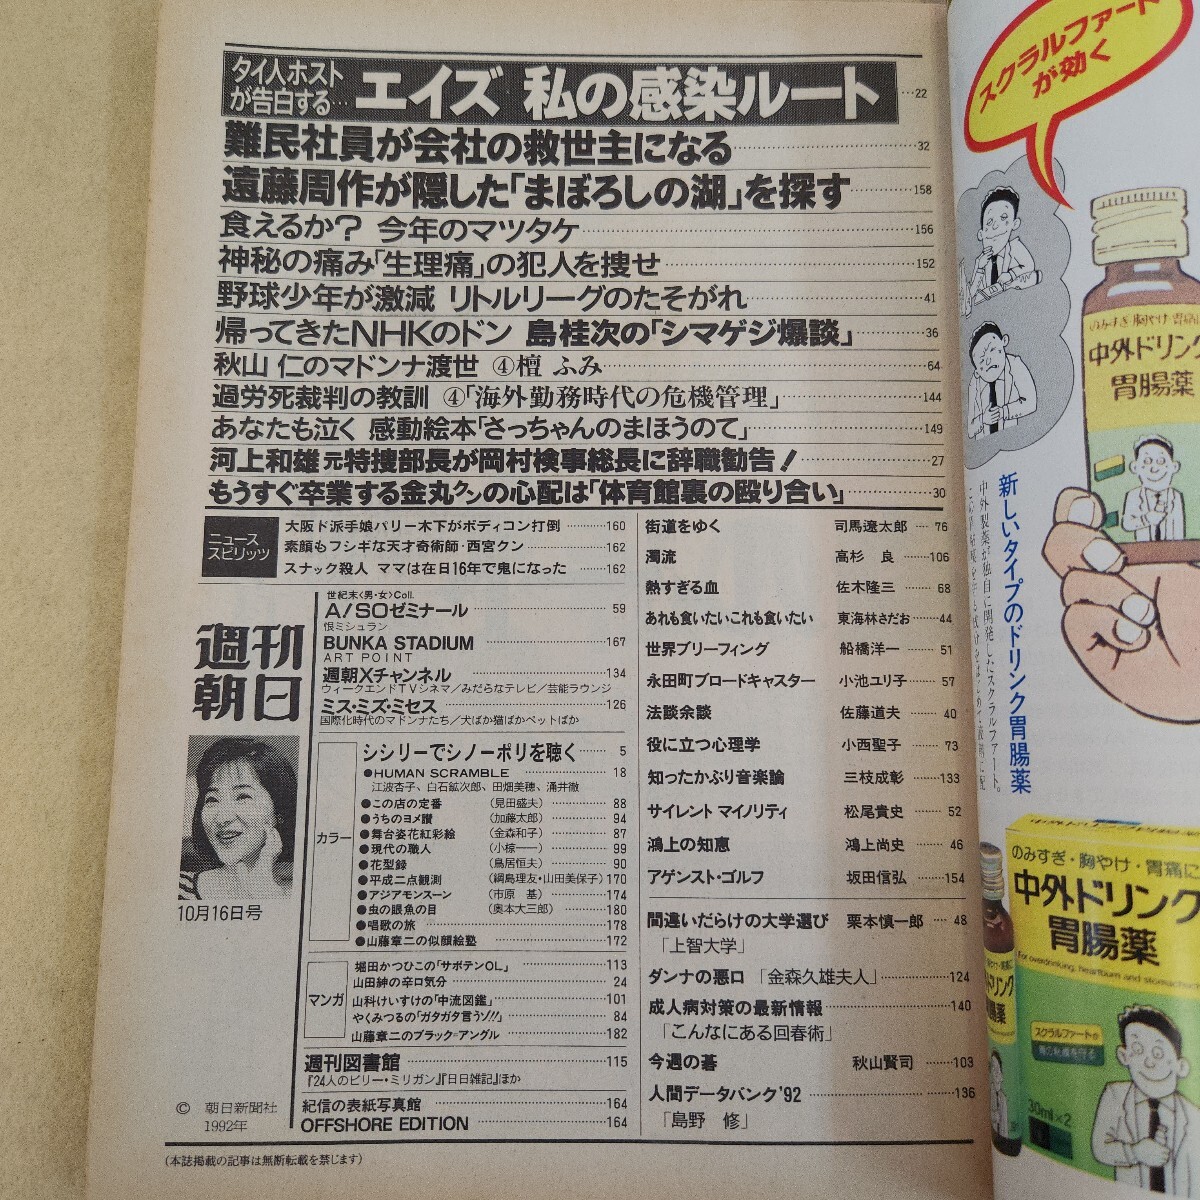 タイ人ホスト
が告白する… エイズ 私の感染ルート …22
難民社員が会社の救世主になる 32
遠藤周作が隠した「まぼろしの湖」を探す 158
食えるか? 今年のマツタケ 156
神秘の痛み「生理痛」の犯人を捜せ 152
野球少年が激減 リトルリーグのたそがれ 41
帰ってきたNHKのドン 島桂次の「シマゲジ爆談」 36
秋山 仁のマドンナ渡世 ④檀 ふみ 64
過労死裁判の教訓 ④「海外勤務時代の危機管理」 144
あなたも泣く 感動絵本「さっちゃんのまほうのて」 149
河上和雄元特捜部長が岡村検事総長に辞職勧告! 27
もうすぐ卒業する金丸クンの心配は「体育館裏の殴り合い」 30
ニュース
スピリッツ
大阪ド派手娘パリー木下がボディコン打倒 160
素顔もフシギな天才奇術師・西宮クン 162
スナック殺人 ママは在日16年で鬼になった 162
世紀末〈男・女〉Coll.
A!SOゼミナール 59
恨ミシュラン
BUNKA STADIUM 167
ART POINT
週朝Xチャンネル 134
ウィークエンドTVシネマ/みだらなテレビ/芸能ラウンジ
ミス・ミズ・ミセス 126
国際化時代のマドンナたち/犬ばか猫ばかペットばか
週刊朝日
10月16日号
カラー
シシリーでシノーポリを聴く 5
●HUMAN SCRAMBLE 18
江波杏子、白石鉱次郎、田畑美穂、涌井徹
●この店の定番 (見田盛夫) 88
●うちのヨメ讃 (加藤太郎) 94
●舞台姿花紅彩絵 (金森和子) 87
●現代の職人 (小椋一一) 99
●花型録 (鳥居恒夫) 90
●平成二点観測 (綱島理友・山田美保子) 170
●アジアモンスーン (市原 基) 174
●虫の眼魚の目 (奥本大三郎) 180
●唱歌の旅 178
●山藤章二の似顔絵塾 172
マンガ
堀田かつひこの「サボテンOL」 113
山田紳の辛口気分 24
山科けいすけの「中流図鑑」 101
やくみつるの「ガタガタ言うゾ!!」 84
山藤章二のブラック=アングル 182
週刊図書館 115
『24人のビリー・ミリガン』『日日雑記』ほか
紀信の表紙写真館 164
OFFSHORE EDITION 164
© 朝日新聞社
1992年
(本誌掲載の記事は無断転載を禁じます)
街道をゆく 司馬遼太郎 76
濁流 高杉 良 106
熱すぎる血 佐木隆三 68
あれも食いたいこれも食いたい 東海林さだお 44
世界ブリーフィング 船橋洋一 51
永田町ブロードキャスター 小池ユリ子 57
法談余談 佐藤道夫 40
役に立つ心理学 小西聖子 73
知ったかぶり音楽論 三枝成彰 133
サイレント マイノリティ 松尾貴史 52
鴻上の知恵 鴻上尚史 46
アゲンスト・ゴルフ 坂田信弘 154
間違いだらけの大学選び 栗本慎一郎 48
「上智大学」
ダンナの悪口「金森久雄夫人」 124
成人病対策の最新情報 140
「こんなにある回春術」
今週の碁 秋山賢司 103
人間データバンク'92 136
「島野 修」
スクラルファート
が効く
のみすぎ・胸やけ・胃痛に
中外ドリンク
胃腸薬
新しいタイプのドリンク胃腸薬
のみすぎ・胸やけ・胃痛に
中外ドリンク
胃腸薬
For overdrinking, heartburn and stomach
スクラルファートが
胃の粘膜を守る
30ml×2